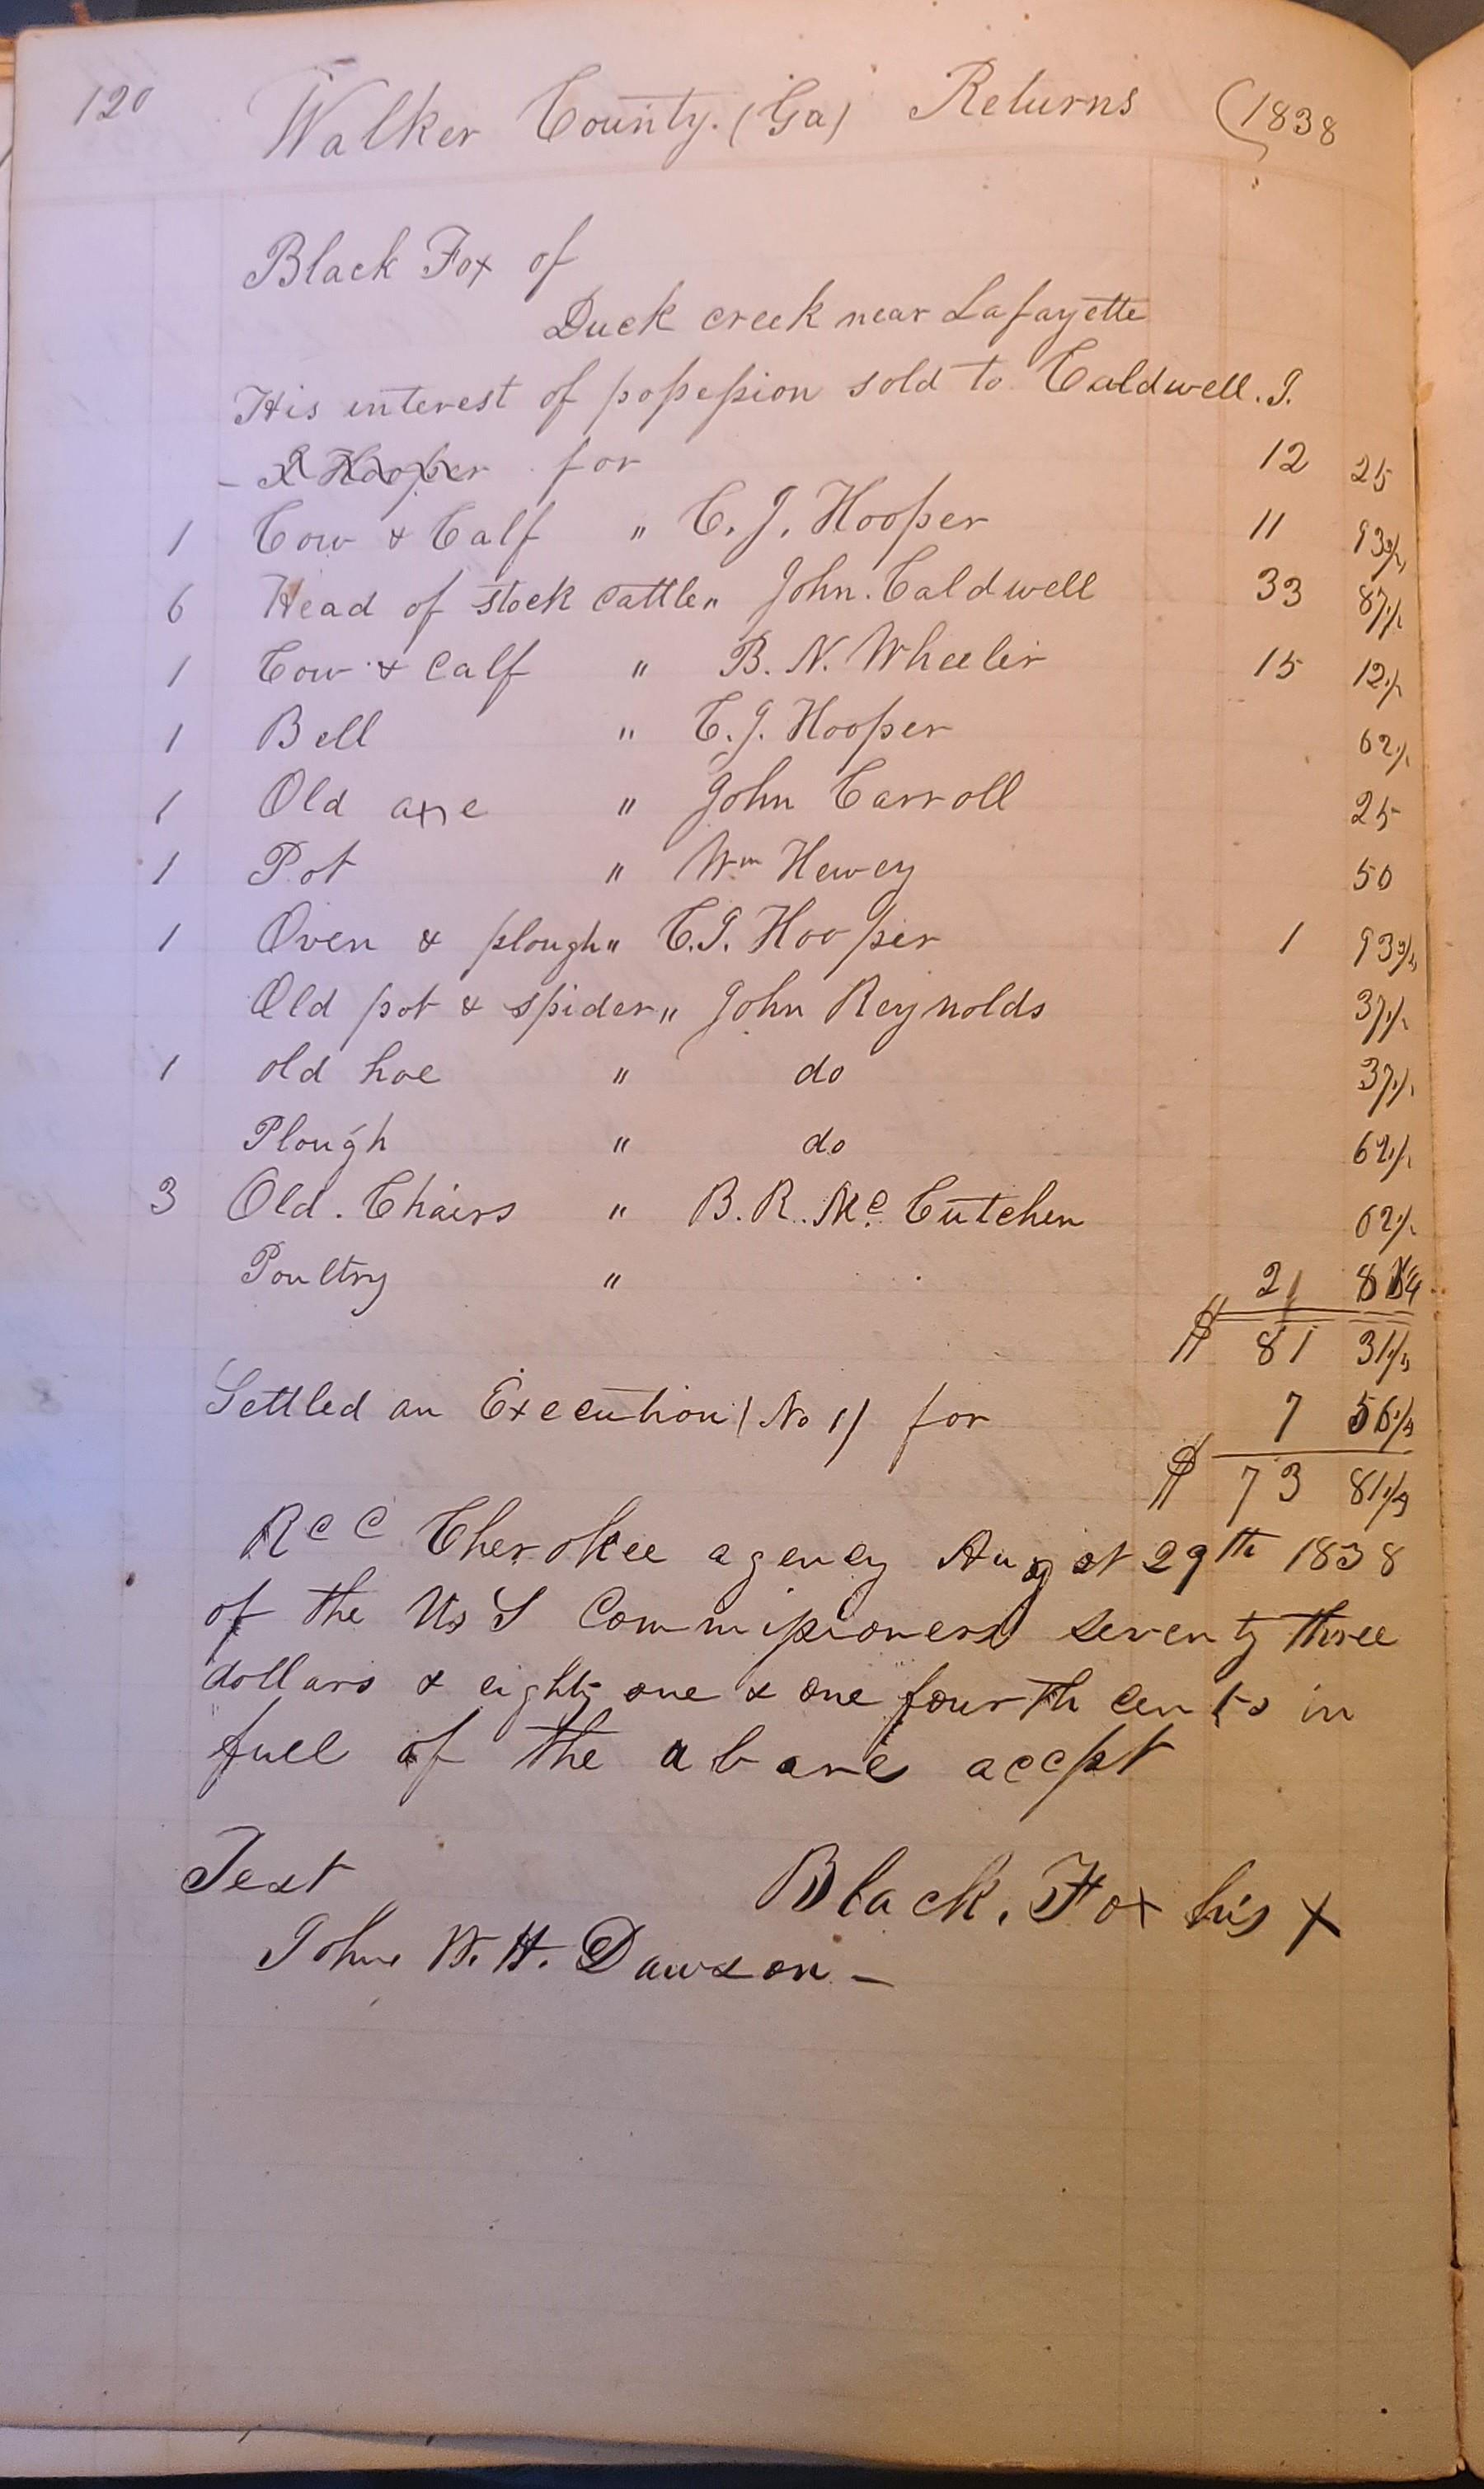 120 Walker County. (Ga) Returns (1838
Black Fox of
Duck creek near Lafayette
His interest of possession sold to Caldwell. J.
R Hooper for 12 25
1 Cow & Calf " C. J. Hooper 11 93 3/4
6 Head of stock cattle " John. Caldwell 33 87 1/2
1 Cow & Calf " B. N. Wheeler 15 12 1/2
1 Bell " C. J. Hooper 62 1/2
1 Old axe " John Carroll 25
1 Pot " Wm Hewey 50
1 Oven & plough " C. J. Hooper 1 93 3/4
Old pot & spider " John Reynolds 37 1/2
1 old hoe " do 37 1/2
Plough " do 62 1/2
3 Old. Chairs " B. R. Mc Cutchen 62 1/2
Poultry " 2
$ 81 31 1/2
Settled an Execution (No 1) for 7 56 1/4
$ 73 81 1/4
Rec Cherokee agency August 29th 1838
of the Us S Commissioners seventy three
dollars & eighty one & one fourth cents in
full of the above accpt
Test Black. Fox his X
John W. H. Dawson –